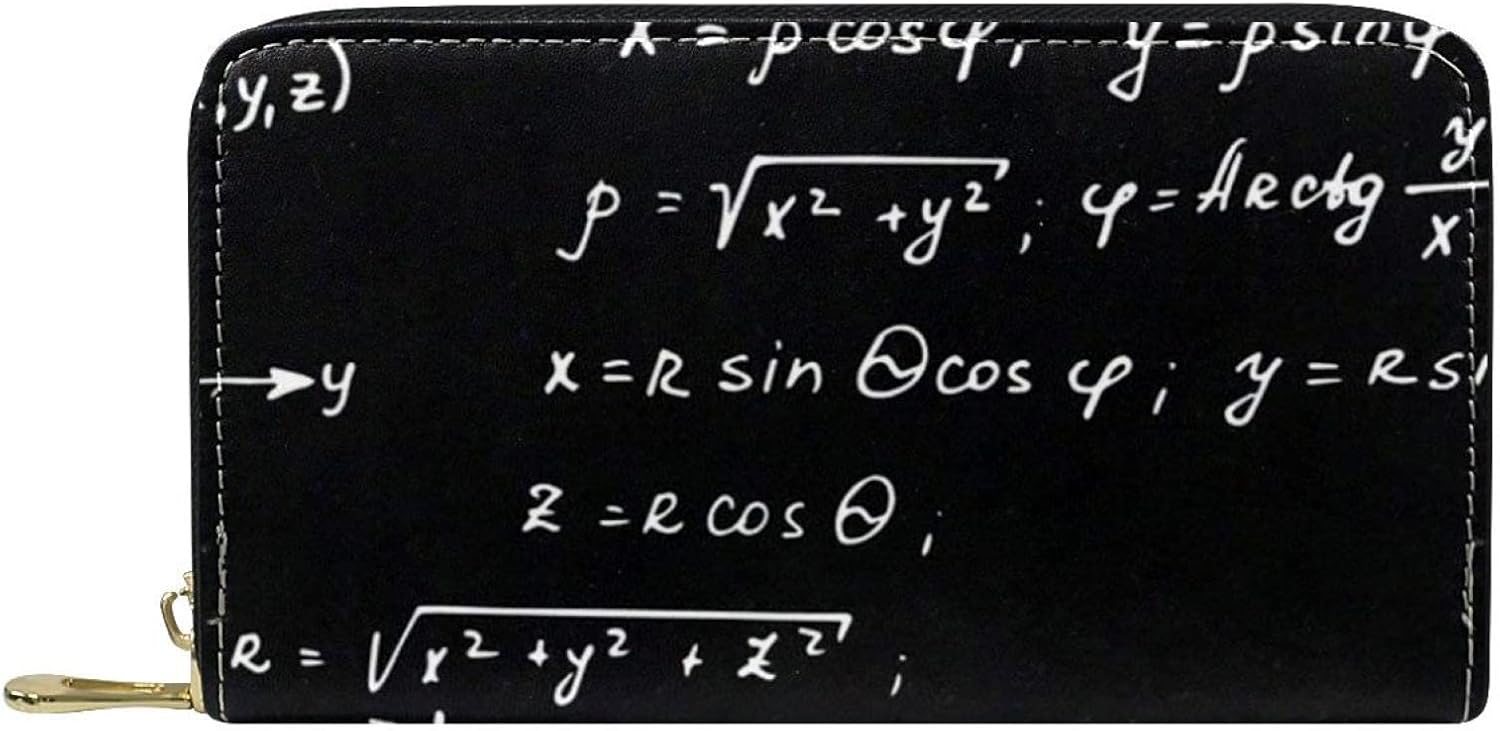 x = ρ cosφ, y = ρ sinφ
y, z)
ρ = √x² + y² ; φ = Arctg y/x
→ y
x = R sin Θ cos φ ; y = R s
z = R cos Θ ;
R = √x² + y² + z² ;